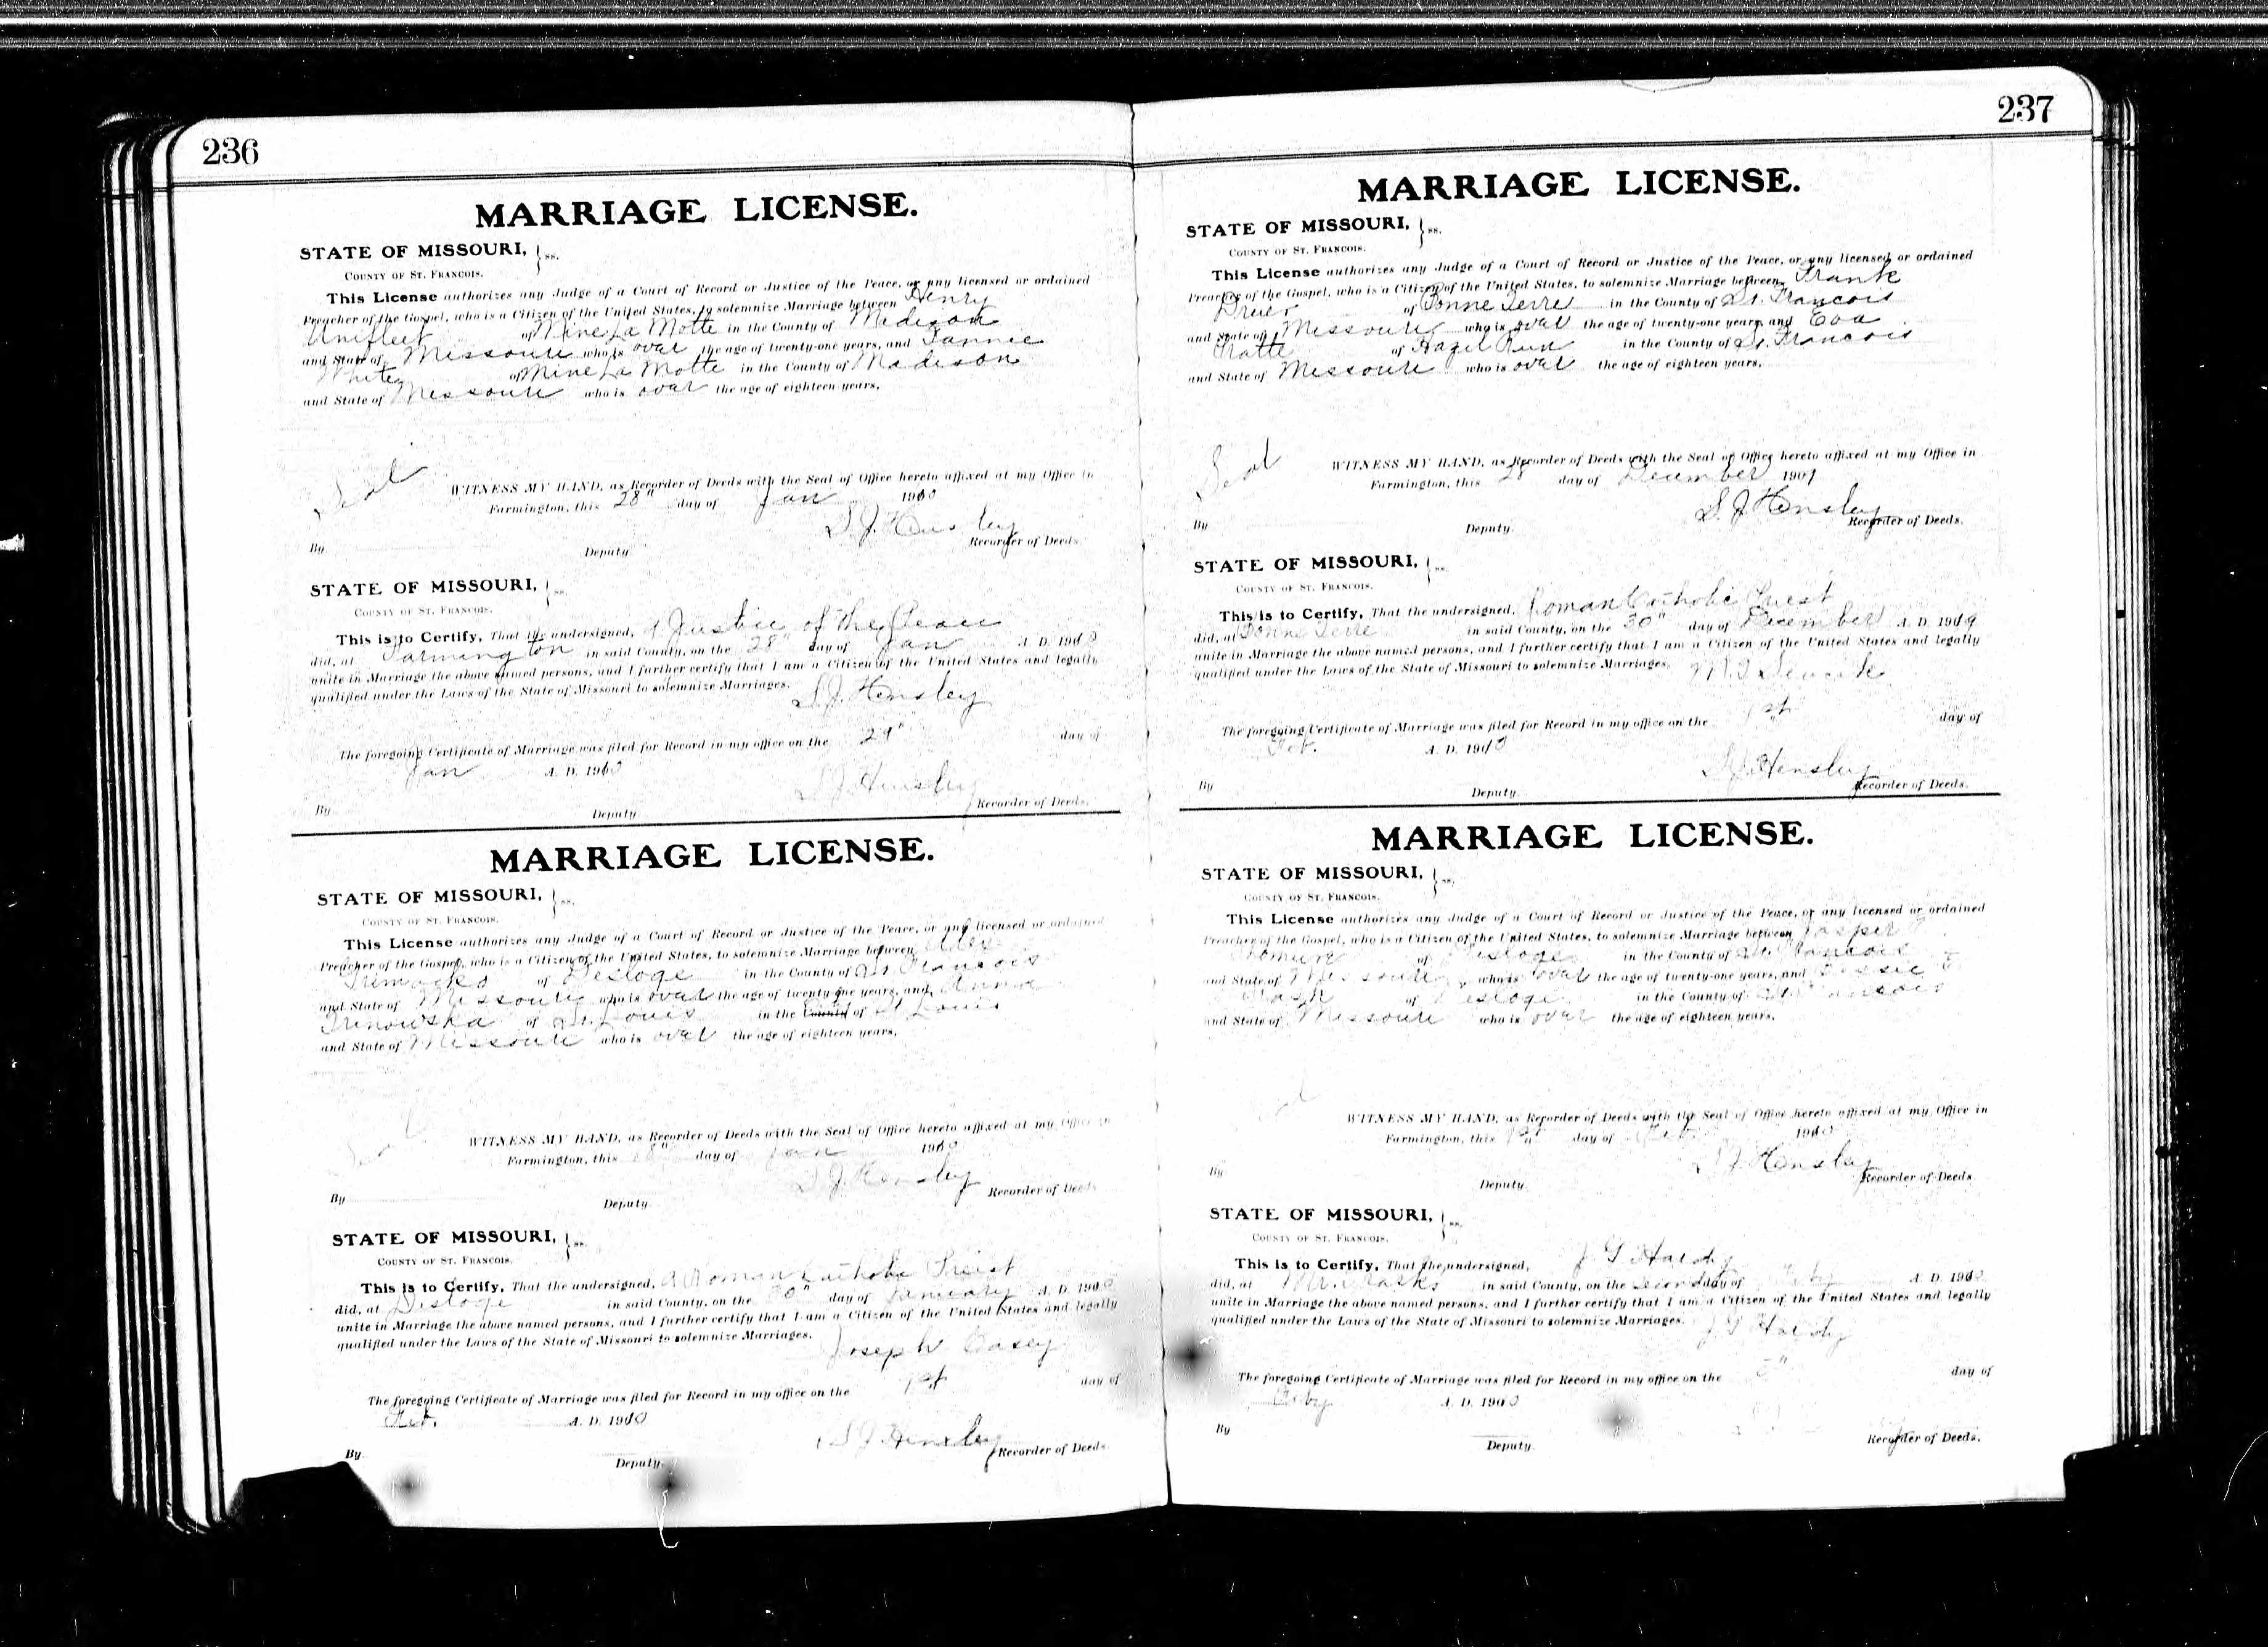 236
MARRIAGE LICENSE.
STATE OF MISSOURI, ss.
COUNTY OF ST. FRANCOIS.
This License authorizes any Judge of a Court of Record or Justice of the Peace, or any licensed or ordained
Preacher of the Gospel, who is a Citizen of the United States, to solemnize Marriage between Henry
of Mine La Motte in the County of Madison
and State of Missouri who is over the age of twenty-one years, and Fannie
White of Mine La Motte in the County of Madison
and State of Missouri who is over the age of eighteen years.
Seal
WITNESS MY HAND, as Recorder of Deeds with the Seal of Office hereto affixed at my Office in
Farmington, this 28" day of Jan 1910
S. J. Hensley
By Deputy. Recorder of Deeds.
STATE OF MISSOURI, ss.
COUNTY OF ST. FRANCOIS.
This is to Certify, That the undersigned, a Justice of the Peace
did, at Farmington in said County, on the 28" day of Jan A. D. 1910
unite in Marriage the above named persons, and I further certify that I am a Citizen of the United States and legally
qualified under the Laws of the State of Missouri to solemnize Marriages. S. J. Hensley
The foregoing Certificate of Marriage was filed for Record in my office on the 29" day of
Jan A. D. 1910
S J Hensley
By Deputy. Recorder of Deeds.
MARRIAGE LICENSE.
STATE OF MISSOURI, ss.
COUNTY OF ST. FRANCOIS.
This License authorizes any Judge of a Court of Record or Justice of the Peace, or any licensed or ordained
Preacher of the Gospel, who is a Citizen of the United States, to solemnize Marriage between
of Desloge in the County of St. Francois
and State of Missouri who is over the age of twenty-one years, and Anna
of St. Louis in the County of St Louis
and State of Missouri who is over the age of eighteen years.
Seal
WITNESS MY HAND, as Recorder of Deeds with the Seal of Office hereto affixed at my Office in
Farmington, this day of Jan 1910
S J Hensley
By Deputy. Recorder of Deeds
STATE OF MISSOURI, ss.
COUNTY OF ST. FRANCOIS.
This is to Certify, That the undersigned, a Roman Catholic Priest
did, at Desloge in said County, on the 30" day of January A. D. 1910
unite in Marriage the above named persons, and I further certify that I am a Citizen of the United States and legally
qualified under the Laws of the State of Missouri to solemnize Marriages. Joseph Casey
The foregoing Certificate of Marriage was filed for Record in my office on the 1st day of
Feb. A. D. 1910
S J Hensley
By Deputy. Recorder of Deeds.
237
MARRIAGE LICENSE.
STATE OF MISSOURI, ss.
COUNTY OF ST. FRANCOIS.
This License authorizes any Judge of a Court of Record or Justice of the Peace, or any licensed or ordained
Preacher of the Gospel, who is a Citizen of the United States, to solemnize Marriage between Frank
of Bonne Terre in the County of St. Francois
and State of Missouri who is over the age of twenty-one years, and Eva
Pratte of Hazel Run in the County of St. Francois
and State of Missouri who is over the age of eighteen years.
Seal
WITNESS MY HAND, as Recorder of Deeds with the Seal of Office hereto affixed at my Office in
Farmington, this 28" day of December 1909
S. J. Hensley
By Deputy. Recorder of Deeds.
STATE OF MISSOURI, ss.
COUNTY OF ST. FRANCOIS.
This is to Certify, That the undersigned, Roman Catholic Priest
did, at Bonne Terre in said County, on the 30" day of December A. D. 1909
unite in Marriage the above named persons, and I further certify that I am a Citizen of the United States and legally
qualified under the Laws of the State of Missouri to solemnize Marriages.
The foregoing Certificate of Marriage was filed for Record in my office on the 1st day of
Feb. A. D. 1910
S J Hensley
By Deputy. Recorder of Deeds.
MARRIAGE LICENSE.
STATE OF MISSOURI, ss.
COUNTY OF ST. FRANCOIS.
This License authorizes any Judge of a Court of Record or Justice of the Peace, or any licensed or ordained
Preacher of the Gospel, who is a Citizen of the United States, to solemnize Marriage between Jasper
of Desloge in the County of St. Francois
and State of Missouri, who is over the age of twenty-one years, and Bessie
of Desloge in the County of St Francois
and State of Missouri who is over the age of eighteen years.
WITNESS MY HAND, as Recorder of Deeds with the Seal of Office hereto affixed at my Office in
Farmington, this 1st day of Feb 1910
S J Hensley
By Deputy Recorder of Deeds
STATE OF MISSOURI, ss.
COUNTY OF ST. FRANCOIS.
This is to Certify, That the undersigned, J G Hardy
did, at in said County, on the second day of A. D. 1910
unite in Marriage the above named persons, and I further certify that I am a Citizen of the United States and legally
qualified under the Laws of the State of Missouri to solemnize Marriages. J G Hardy
The foregoing Certificate of Marriage was filed for Record in my office on the day of
Feby A. D. 1910
By Deputy. Recorder of Deeds.